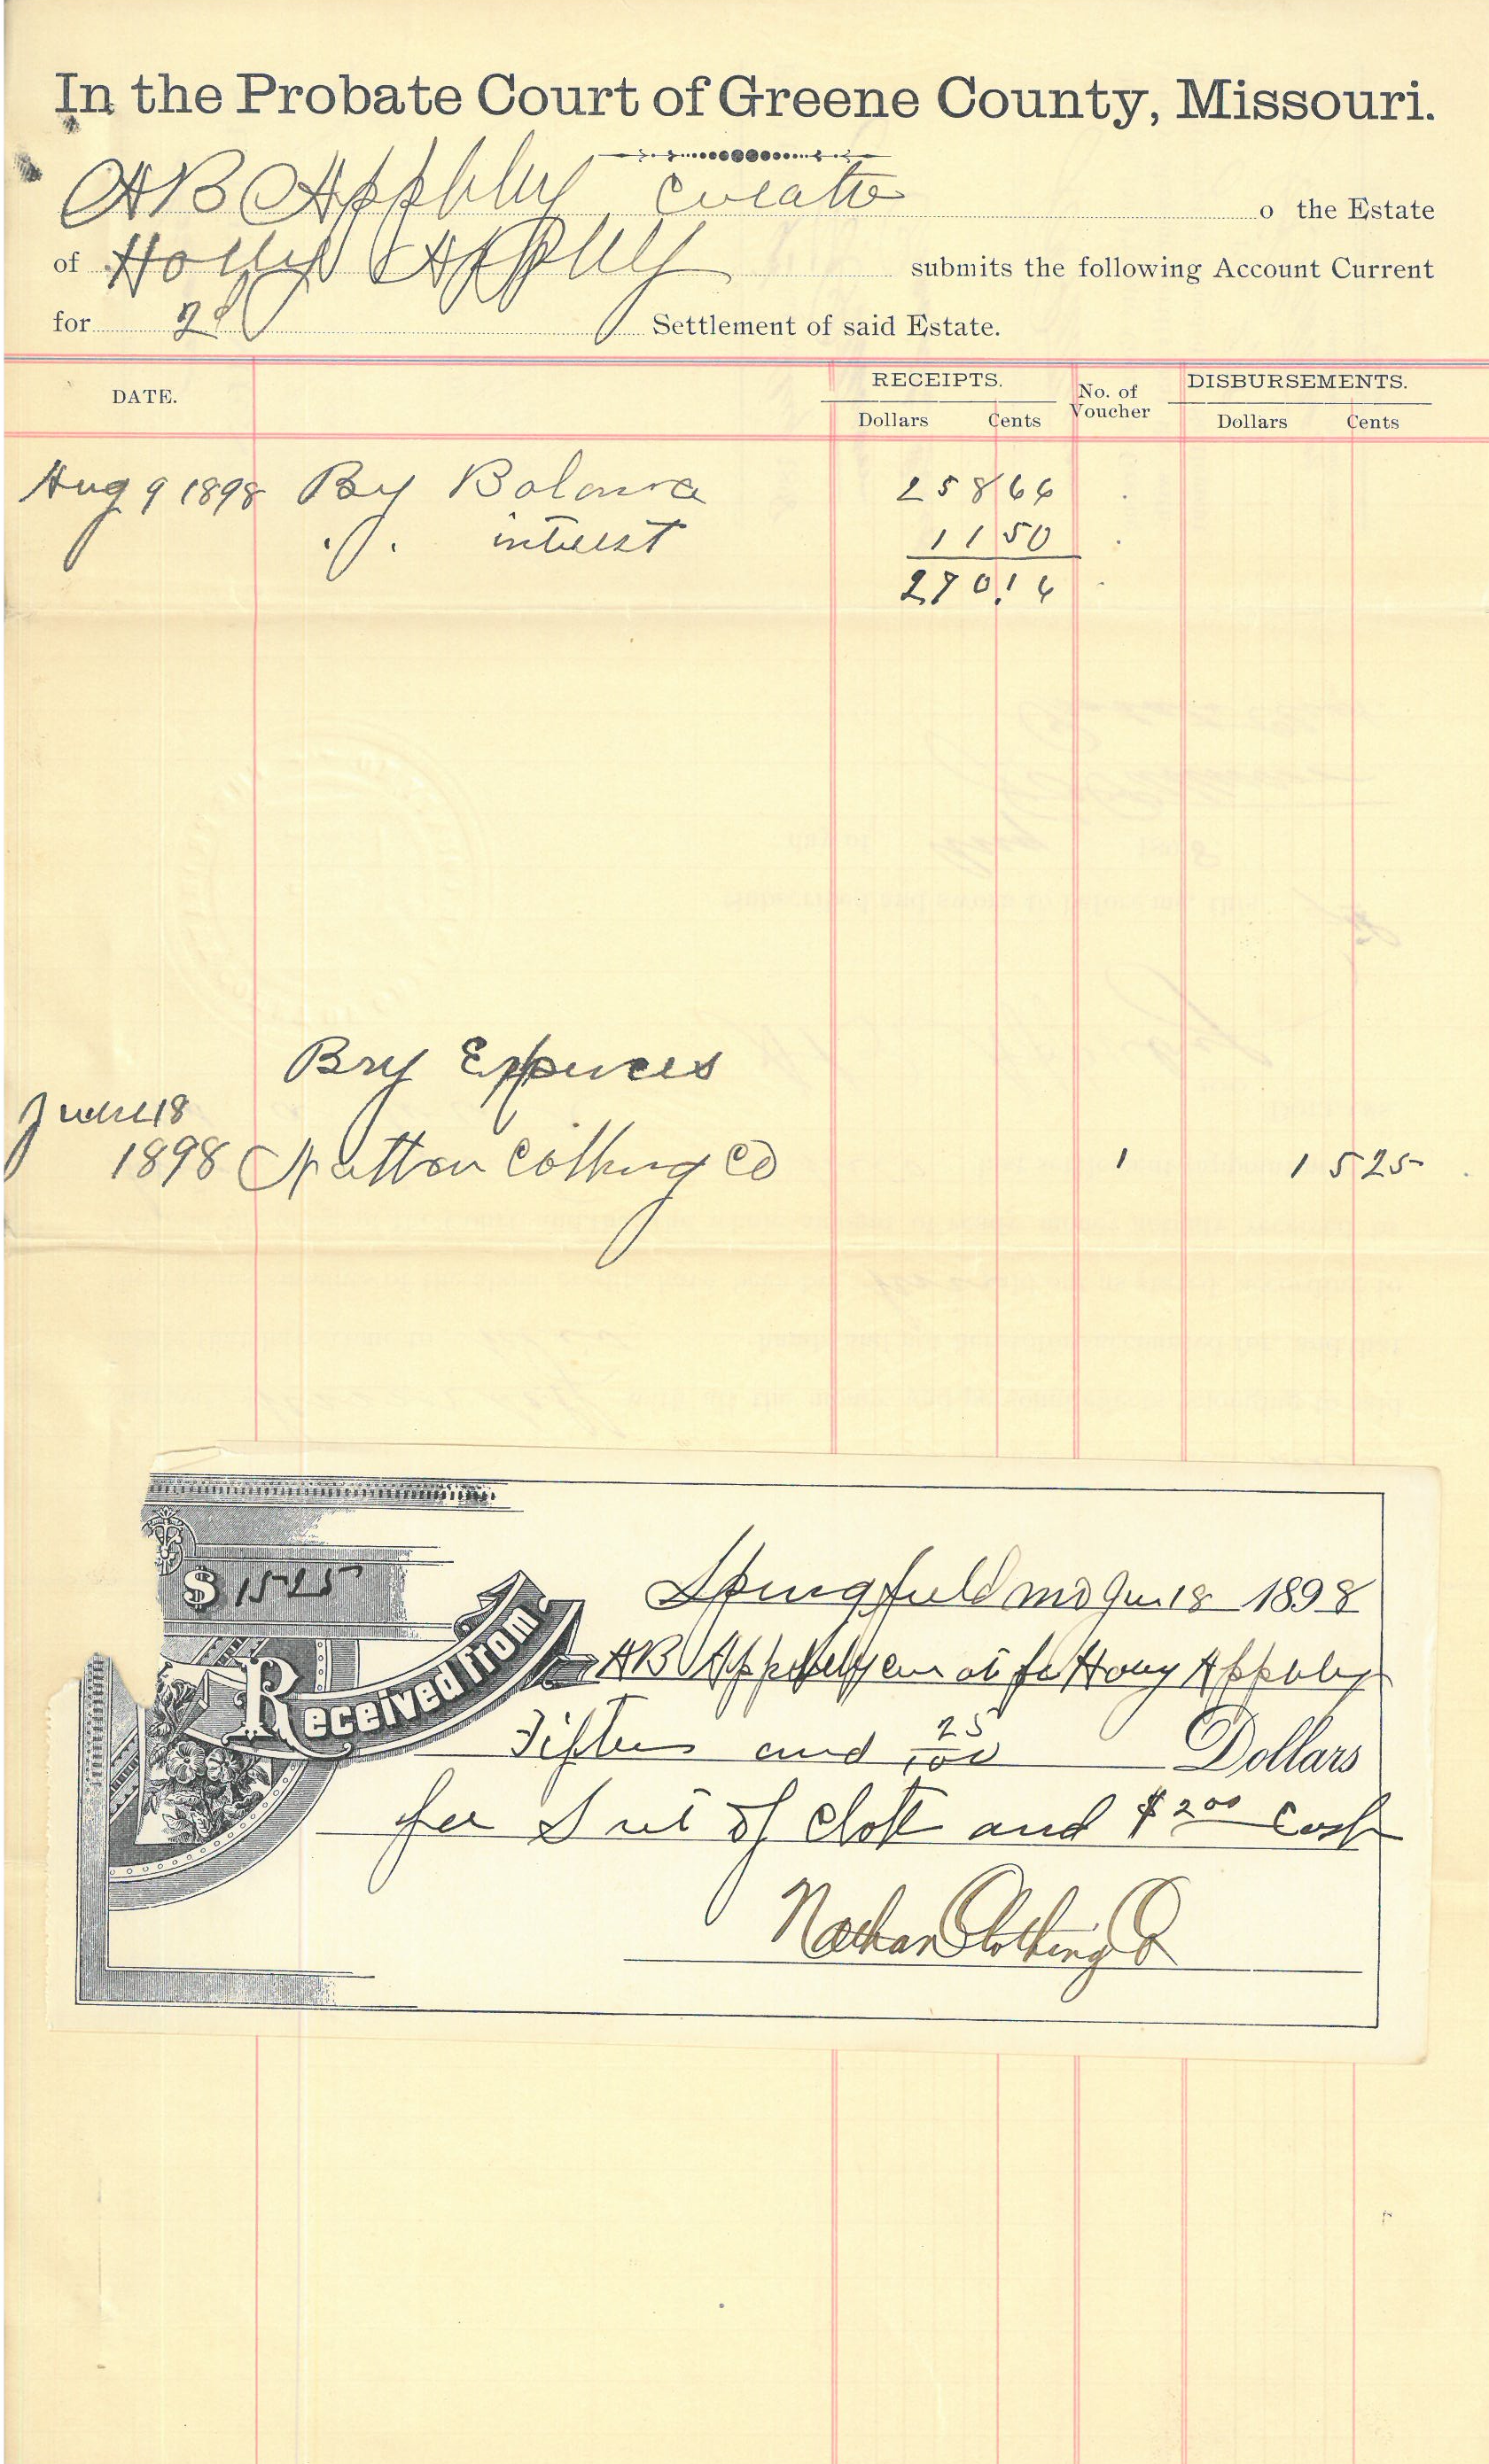 In the Probate Court of Greene County, Missouri.
AB Appleby curator o the Estate
of Holly Appleby submits the following Account Current
for 2d Settlement of said Estate.
DATE. RECEIPTS. No. of Voucher DISBURSEMENTS.
Dollars Cents Dollars Cents
Aug 9 1898 By Balance 258 64
" " interest 11 50
270 14
By Expences
June 18
1898 Clothing Co 1 15 25
$ 15 25
Springfield mo Jun 18 1898
Received from AB Appleby Appleby
Fifteen and 25/100 Dollars
for Suit of cloth and $2 00 Cash
Nathan Clothing Co